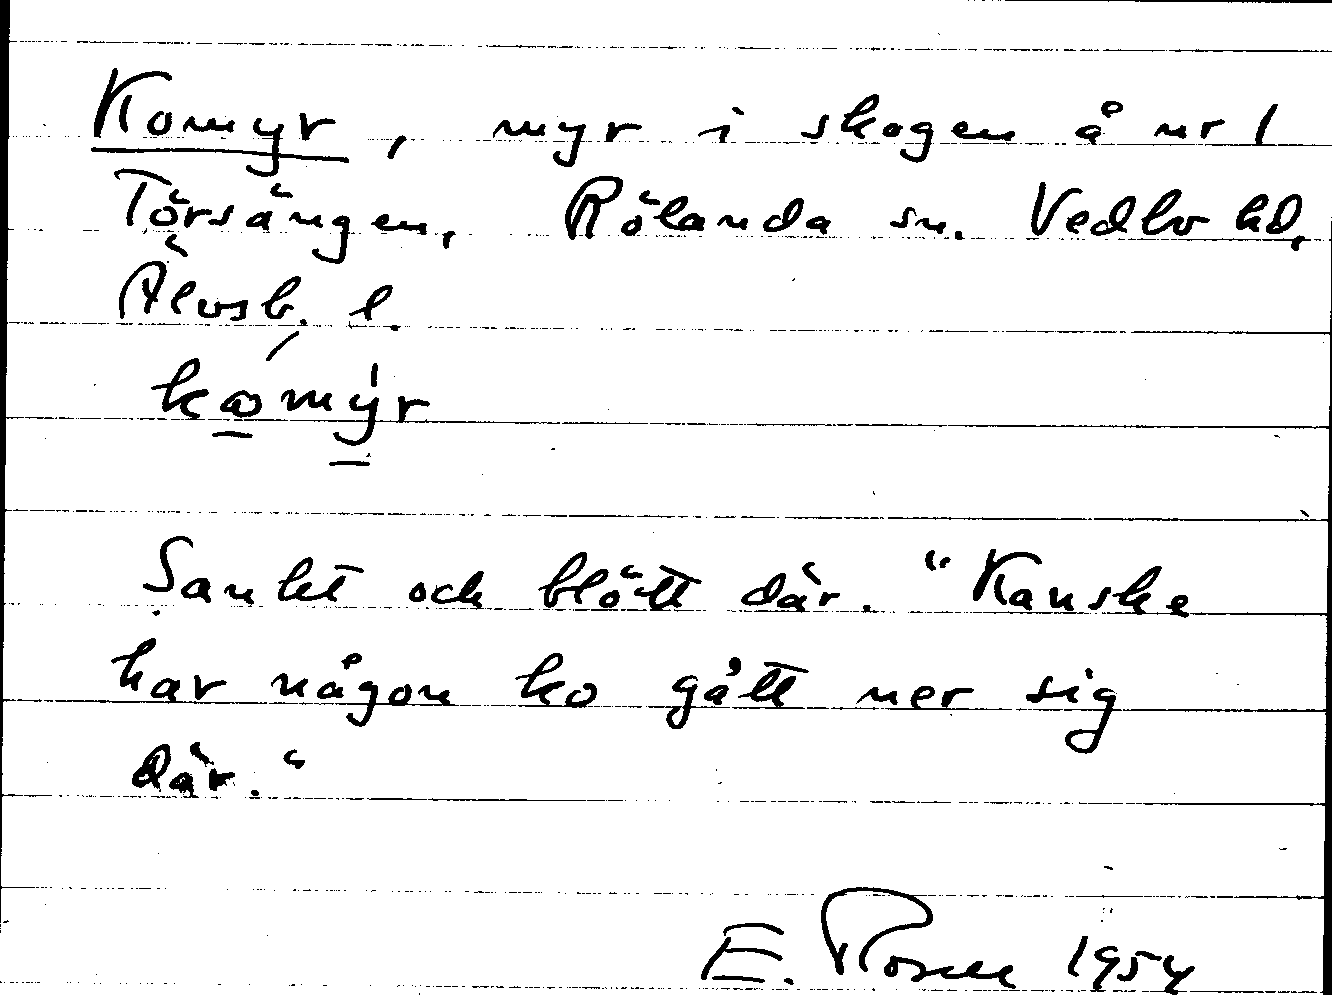 Komyr, myr i skogen å nr 1
Törsängen, Rölanda sn. Vedbo hd,
Älvsb. l.
komýr
Sankt och blött där. "Kanske
har någon ko gått ner sig
där."
E. Rosen 1954